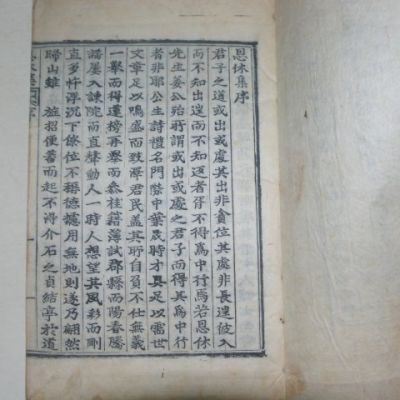 恩休集序
君子之道或出或處其出非貪位其處非長往彼入
而不知出遑而不知返者胥不得爲中行焉若恩休
先生姜公殆所謂或出或處之君子而得其爲中行
者非耶公生詩禮名門際中葉晟時才具足以需世
文章足以鳴盛而致澤君民盖其所自負不仕無義
一擧而得蓮榜再擧而叅桂籍薄試郡縣而陽春騰
謠屢入諫院而直聲動人一時人想望其風彩而剛
直多忤浮沉下僚位不稱德攄用無地則遂乃翩然
歸山雖旌招便蕃而起不得介石之貞結亭於道